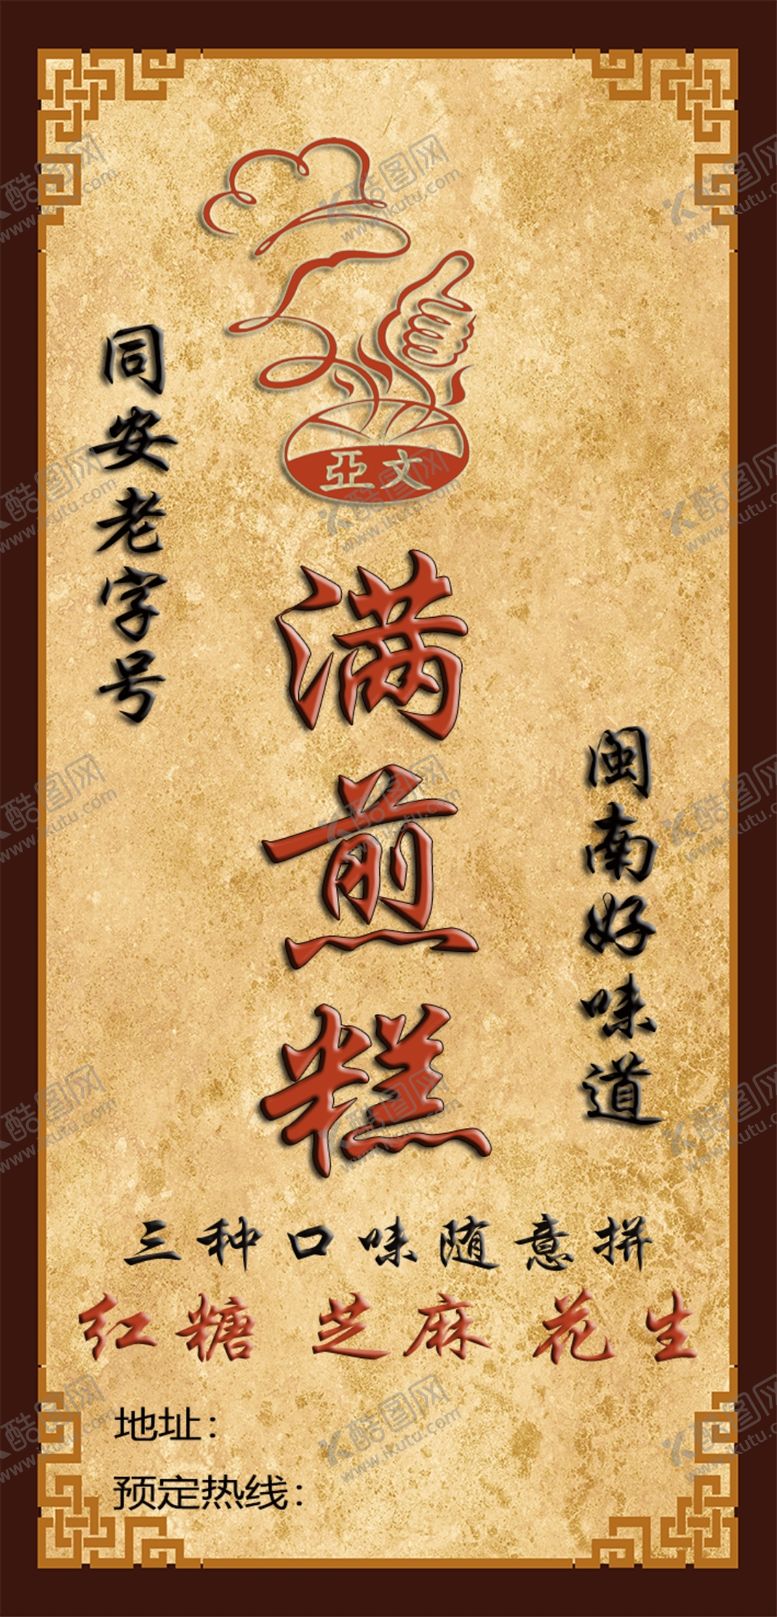 亞文
同安老字号
满煎糕
闽南好味道
三种口味随意拼
红糖 芝麻 花生
地址：
预定热线：
酷图网
www.ikutu.com